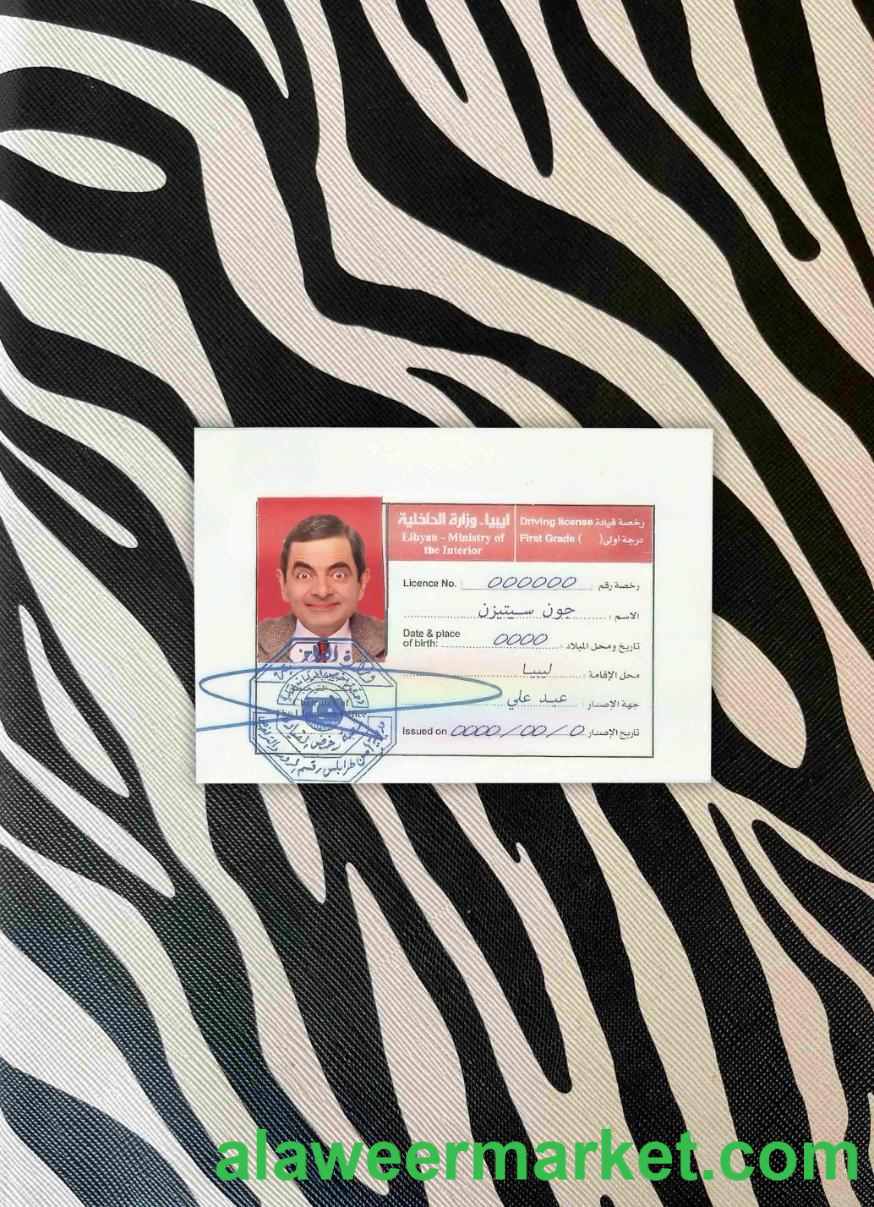 ليبيا - وزارة الداخلية
Libyan - Ministry of
the Interior
Driving license رخصة قيادة
First Grade ( ) درجة اولى
Licence No. 000000 رخصة رقم
الاسم : جون سيتيزن
Date & place
of birth: 0000 تاريخ ومحل الميلاد :
محل الإقامة : ليبيا
جهة الاصدار : عبد علي
Issued on 0000/00/0 تاريخ الإصدار
alaweermarket.com